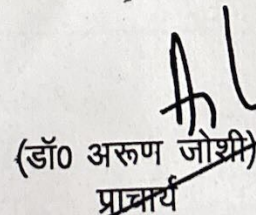 (डॉ0 अरूण जोशी)
प्राचार्य